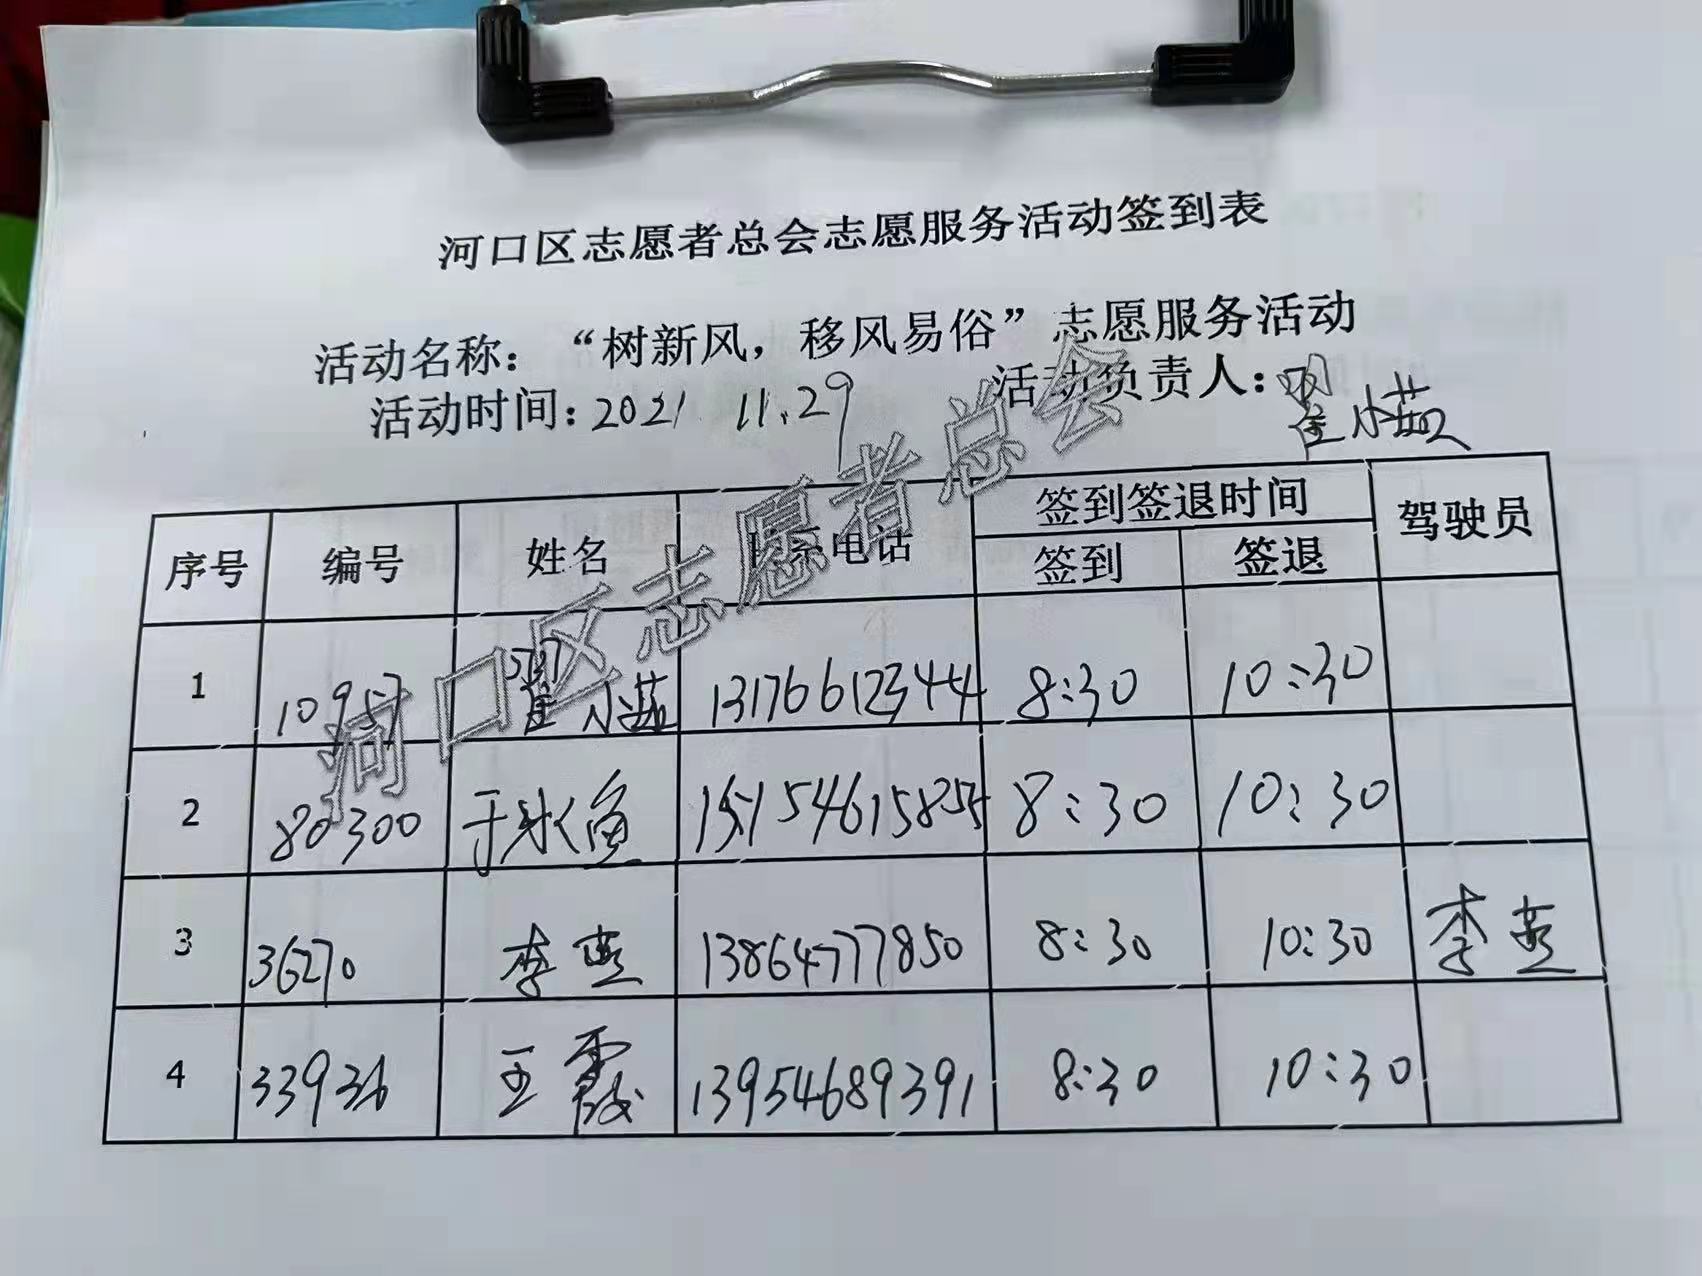 河口区志愿者总会志愿服务活动签到表
活动名称：“树新风，移风易俗”志愿服务活动
活动时间：2021 11.29 活动负责人：翟小茹
序号 编号 姓名 联系电话 签到签退时间 驾驶员
签到 签退
1 10957 翟小茹 13176612344 8:30 10:30
2 80300 于水鱼 8:30 10:30
3 36270 李燕 13864777850 8:30 10:30 李燕
4 33936 王霞 13954689391 8:30 10:30
河口区志愿者总会